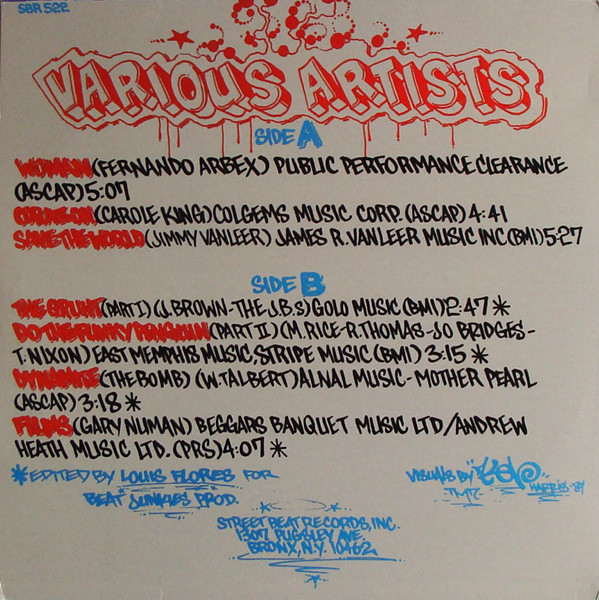 SBR 522
VARIOUS ARTISTS
SIDE A
WOMAN (FERNANDO ARBEX) PUBLIC PERFORMANCE CLEARANCE
(ASCAP) 5:07
CORAZON (CAROLE KING) COLGEMS MUSIC CORP. (ASCAP) 4:41
SAVE THE WORLD (JIMMY VANLEER) JAMES R. VANLEER MUSIC INC (BMI) 5:27
SIDE B
THE GRUNT (PART I) (J. BROWN-THE J.B.S) GOLO MUSIC (BMI) 2:47 *
DO THE FUNKY PENGUIN (PART II) (M. RICE-R. THOMAS-JO BRIDGES-
T. NIXON) EAST MEMPHIS MUSIC, STRIPE MUSIC (BMI) 3:15 *
DYNAMITE (THE BOMB) (W. TALBERT) ALNAL MUSIC - MOTHER PEARL
(ASCAP) 3:18 *
FILMS (GARY NUMAN) BEGGARS BANQUET MUSIC LTD/ANDREW
HEATH MUSIC LTD. (PRS) 4:07 *
*EDITED BY LOUIS FLORES FOR
"BEAT JUNKIES" PROD.
VISUALS BY
TMT.
HARRIS '87
STREET BEAT RECORDS, INC.
1307 PUGSLEY AVE.
BRONX, N.Y. 10462